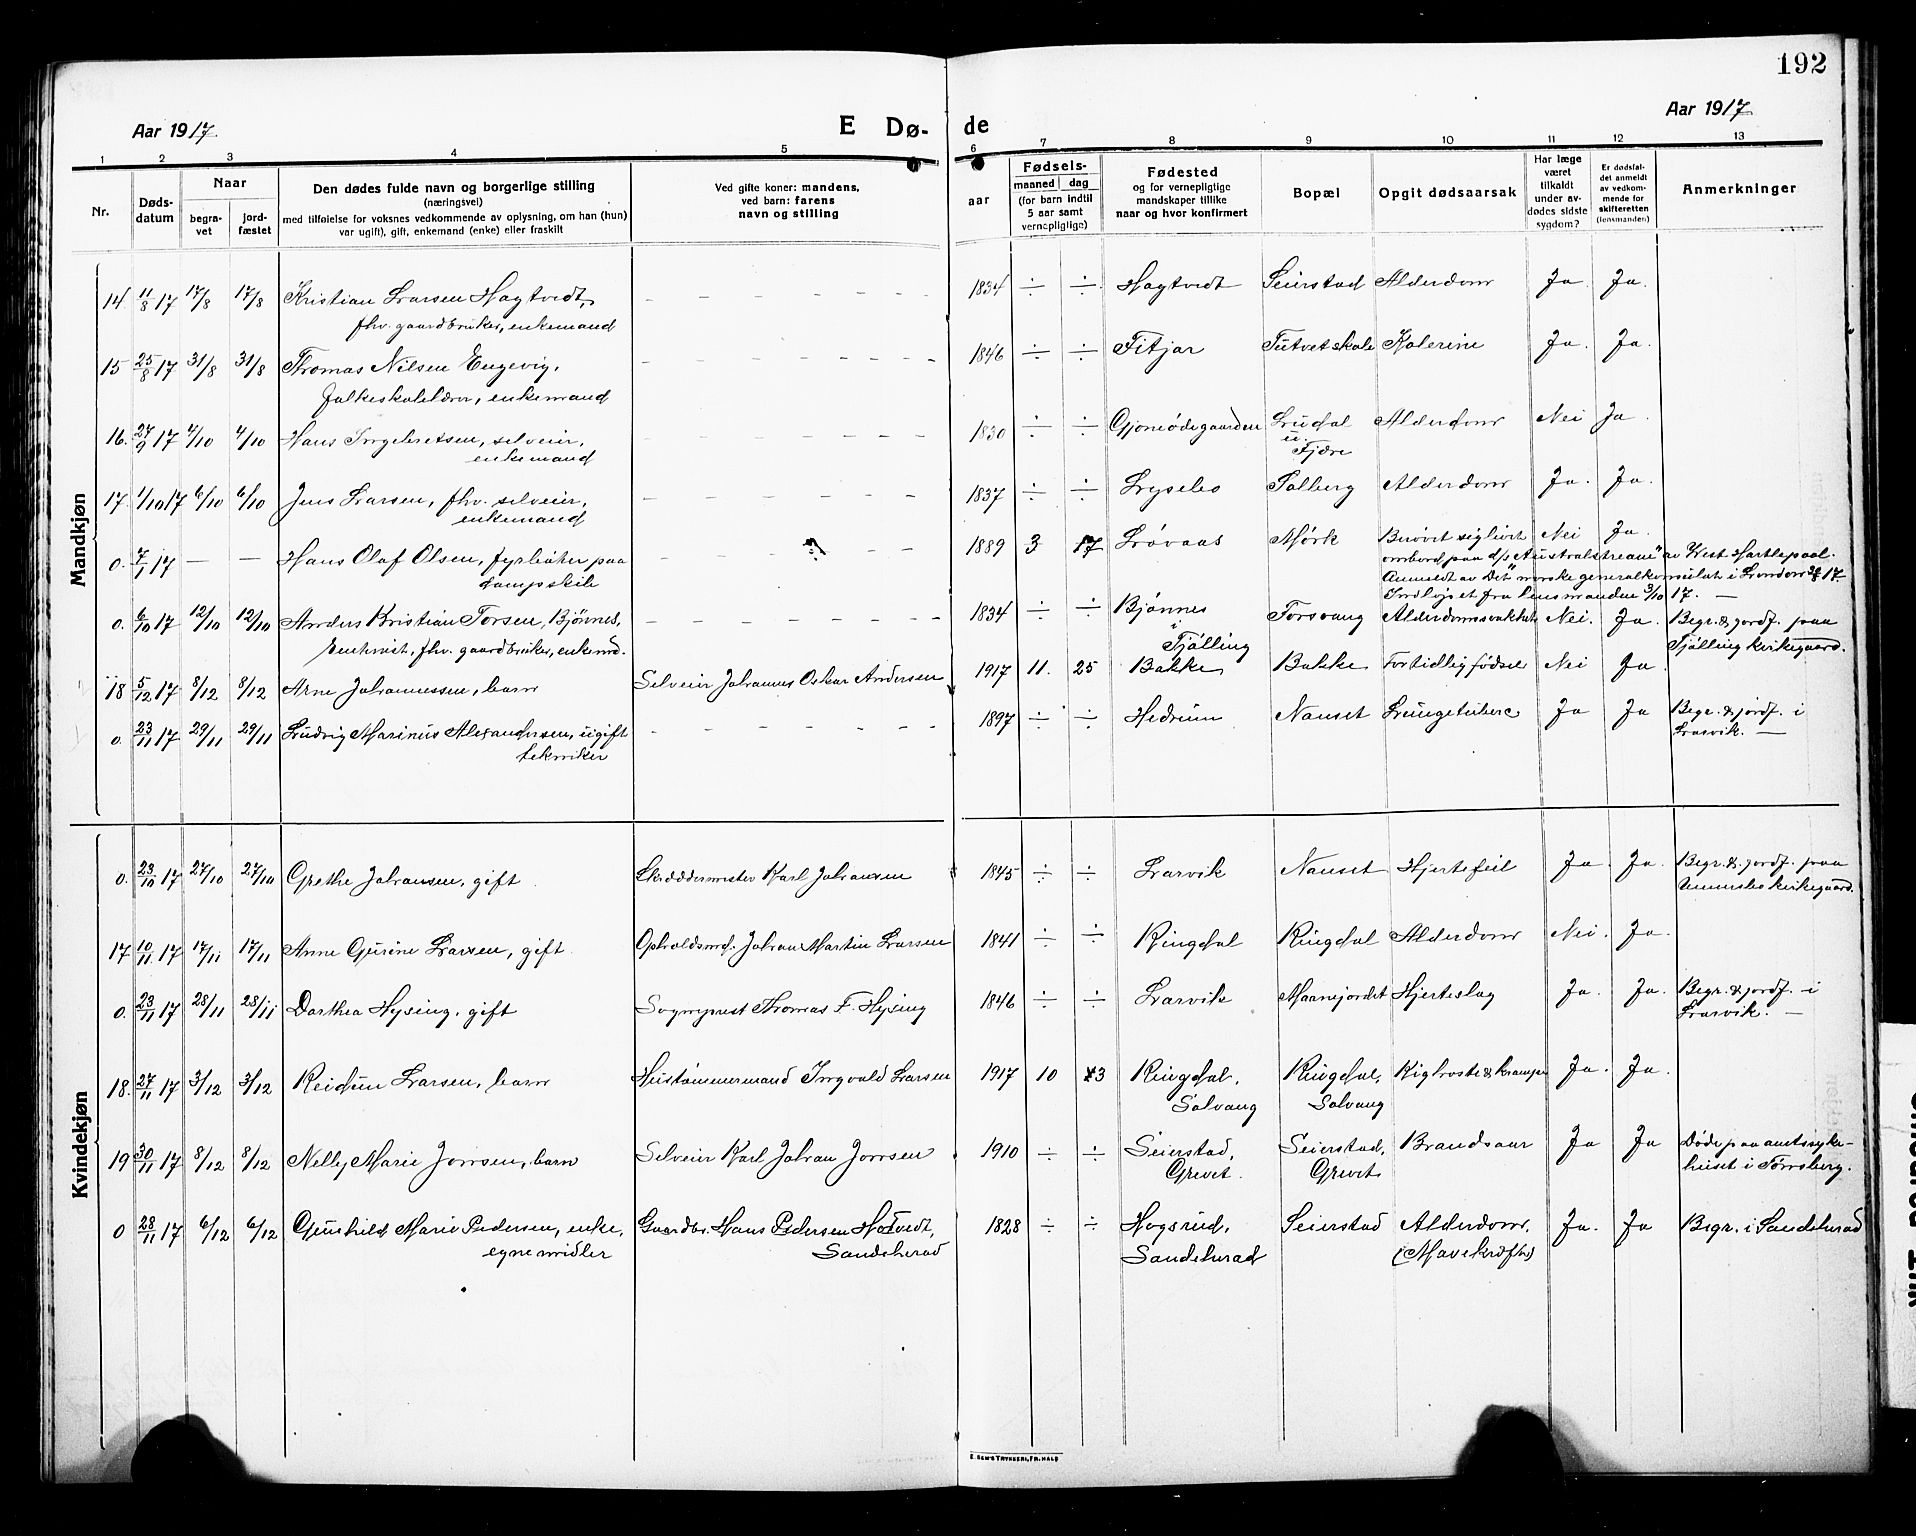 192
Aar 1917.
E Dø-
de
Aar 1917
1 2 3 4 5 6 7 8 9 10 11 12 13
Nr.
Døds-
datum
Naar
begra-
vet
jord-
fæstet
Den dødes fulde navn og borgerlige stilling
(næringsvei)
med tilføielse for voksnes vedkommende av oplysning, om han (hun)
var ugift), gift, enkemand (enke) eller fraskilt
Ved gifte koner: mandens,
ved barn: farens
navn og stilling
aar
Fødsels-
maaned dag
(for barn indtil
5 aar samt
vernepligtige)
Fødested
og for vernepligtige
mandskaper tillike
naar og hvor konfirmert
Bopæl
Opgit dødsaarsak
Har læge
været
tilkaldt
under av-
dødes sidste
sygdom?
Er dødsfal-
det anmeldt
av vedkom-
mende for
skifteretten
(lensmanden)
Anmerkninger
Mandkjøn
14 11/8 17 17/8 17/8 Kristian Larsen Hagtvedt, – – – 1834 ÷ ÷ Hagtvedt Seierstad Alderdom Ja. Ja.
fhv. gaardbruker, enkemand
15 25/8 17 31/8 31/8 Thomas Nilsen Engevig, – – – 1846 ÷ ÷ Fitjar Tutvet skole Kolerine Ja. Ja.
folkeskolelærer, enkemand
16. 27/9 17 4/10 4/10 Hans Ingebretsen, selveier, – – – 1830 ÷ ÷ Gjoneødegaarden Lindal Alderdom Nei Ja
enkemand
Fjære
17. 1/10 17 6/10 6/10 Jens Larsen, fhv. selveier, – – – 1837 ÷ ÷ Lysebo Solberg Alderdom Ja. Ja.
enkemand
0. 7/1 17 — — Hans Olaf Olsen, fyrbøter paa – – – 1889 3 17 Løvaas Mørk Berøvet sig livet Nei Ja.
dampskib
ombord paa d/s "Australstream" av West Hartlepool.
Anmeldt av Det norske generalkonsulat i London 17.
Indløpet fra lensmanden 3/10 17. —
0. 6/10 17 12/10 12/10 Anders Kristian Torsen, Bjønnes, – – – 1834 ÷ ÷ Bjønnes Torsvang Alderdomssvakhet Nei. Ja. Begr. & jordf. paa
fhv. gaardbruker, enkemd. i Tjølling Tjølling kirkegaard.
18 5/12 17 8/12 8/12 Arne Johannessen, barn Selveier Johannes Oskar Andersen 1917 11. 25 Bakke Bakke For tidlig fødsel Nei Ja
0. 23/11 17 29/11 29/11 Ludvig Marinus Alexandersen, ugift – – – 1897 ÷ ÷ Hedrum Nanset Lungetuberc Ja Ja Begr. & jordf. i
tekniker Larvik. —
Kvindekjøn
0. 23/10 17 27/10 27/10 Grethe Johansen, gift Skræddermester Karl Johansen 1845 ÷ ÷ Larvik Nanset Hjertefeil Ja. Ja. Begr. & jordf. paa
Undersbo kirkegaard.
17 10/11 17 17/11 17/11 Anne Gurine Larsen, gift Opholdsmd. Johan Martin Larsen 1841 ÷ ÷ Ringdal Ringdal Alderdom Nei. Ja.
0. 23/11 17 28/11 28/11 Dorthea Hysing, gift Sogneprest Thomas F. Hysing 1846 ÷ ÷ Larvik Maanejordet Hjerteslag Ja. Ja. Begr. & jordf. i
Larvik. —
18. 27/11 17 3/12 3/12 Reidun Larsen, barn Hustømmermand Ingvald Larsen 1917 10 3 Ringdal, Ringdal, Kighoste & kramper Ja. Ja.
Solvang Solvang
19 30/11 17 8/12 8/12 Nelly Marie Jonsen, barn Selveier Karl Johan Jonsen 1910 ÷ ÷ Seierstad, Seierstad, Brandsaar Ja Ja Døde paa amtssyke-
Grevet. Grevet huset i Tønsberg.
0 28/11 17 6/12 6/12 Gunhild Marie Pedersen, enke, Gaardbr. Hans Pedersen Hotvedt, 1828 ÷ ÷ Hogsrud, Seierstad Alderdom, Ja. Ja Begr. i Sandeherad
egne midler Sandeherad Sandeherad (Mavekræft)